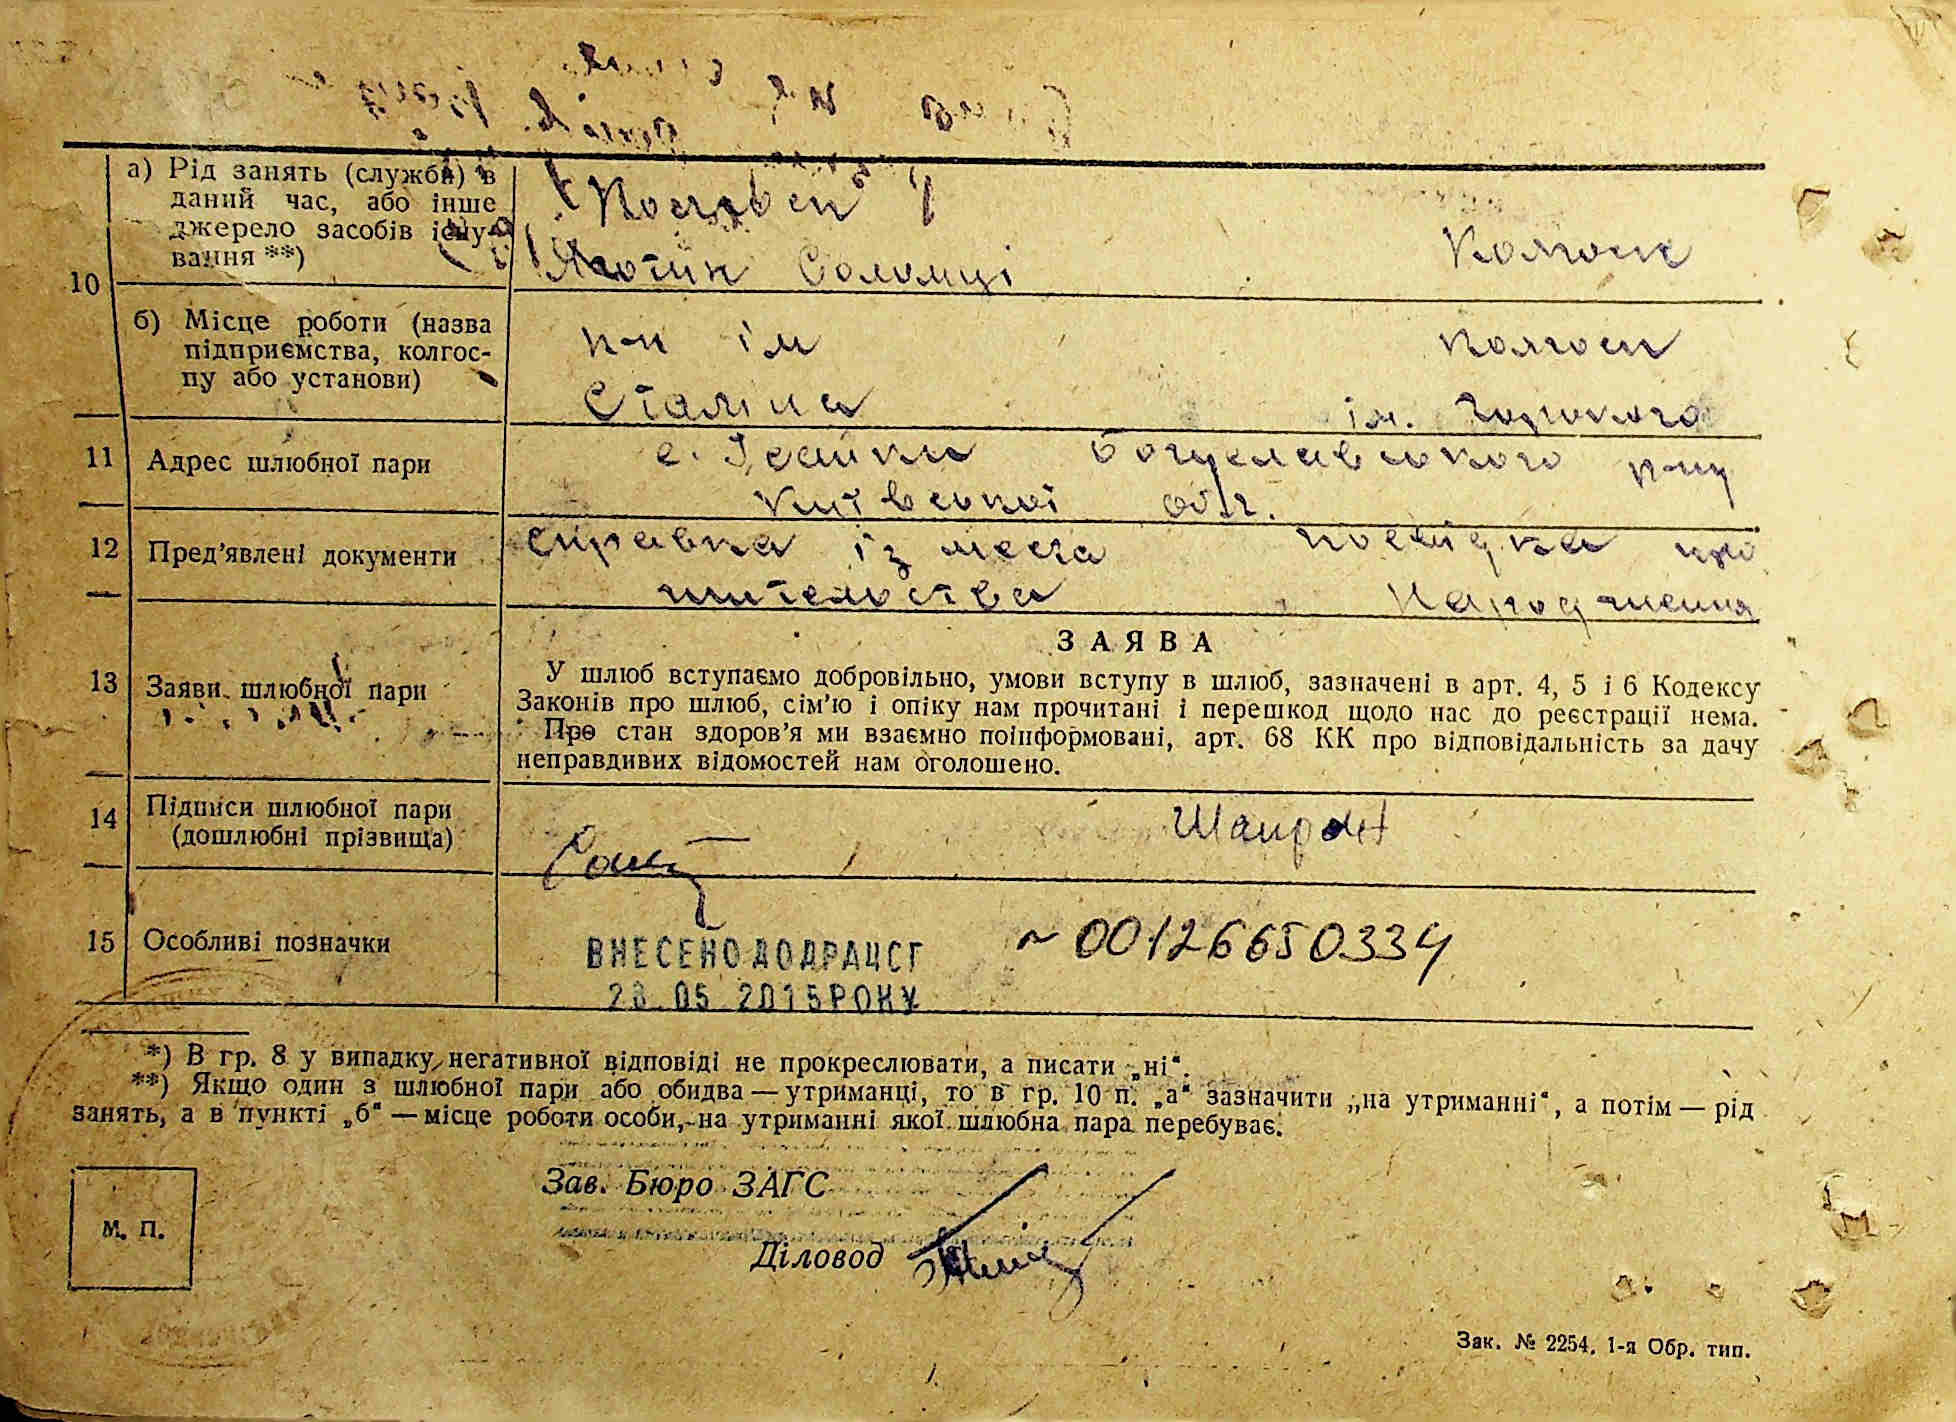 10
а) Рід занять (служби) в
даний час, або інше
джерело засобів існу-
вання **)
Колгосп
б) Місце роботи (назва
підприємства, колгос-
пу або установи)
к-п ім
Сталіна
колгосп
ім. Горького
11 Адрес шлюбної пари
с. Ісайки Богуславського р-ну
Київської обл.
12 Пред'явлені документи
справка із места
жительства
посвідка про
народження
13 Заяви шлюбної пари
ЗАЯВА
У шлюб вступаємо добровільно, умови вступу в шлюб, зазначені в арт. 4, 5 і 6 Кодексу
Законів про шлюб, сім'ю і опіку нам прочитані і перешкод щодо нас до реєстрації нема.
Про стан здоров'я ми взаємно поінформовані, арт. 68 КК про відповідальність за дачу
неправдивих відомостей нам оголошено.
14 Підписи шлюбної пари
(дошлюбні прізвища)
15 Особливі позначки
ВНЕСЕНО ДО ДРАЦСГ
05 2015 РОКУ
~ 00126650334
*) В гр. 8 у випадку негативної відповіді не прокреслювати, а писати „ні“.
**) Якщо один з шлюбної пари або обидва — утриманці, то в гр. 10 п. „а“ зазначити „на утриманні“, а потім — рід
занять, а в пункті „б“ — місце роботи особи, на утриманні якої шлюбна пара перебуває.
М. П.
Зав. Бюро ЗАГС
Діловод
Зак. № 2254. 1-я Обр. тип.